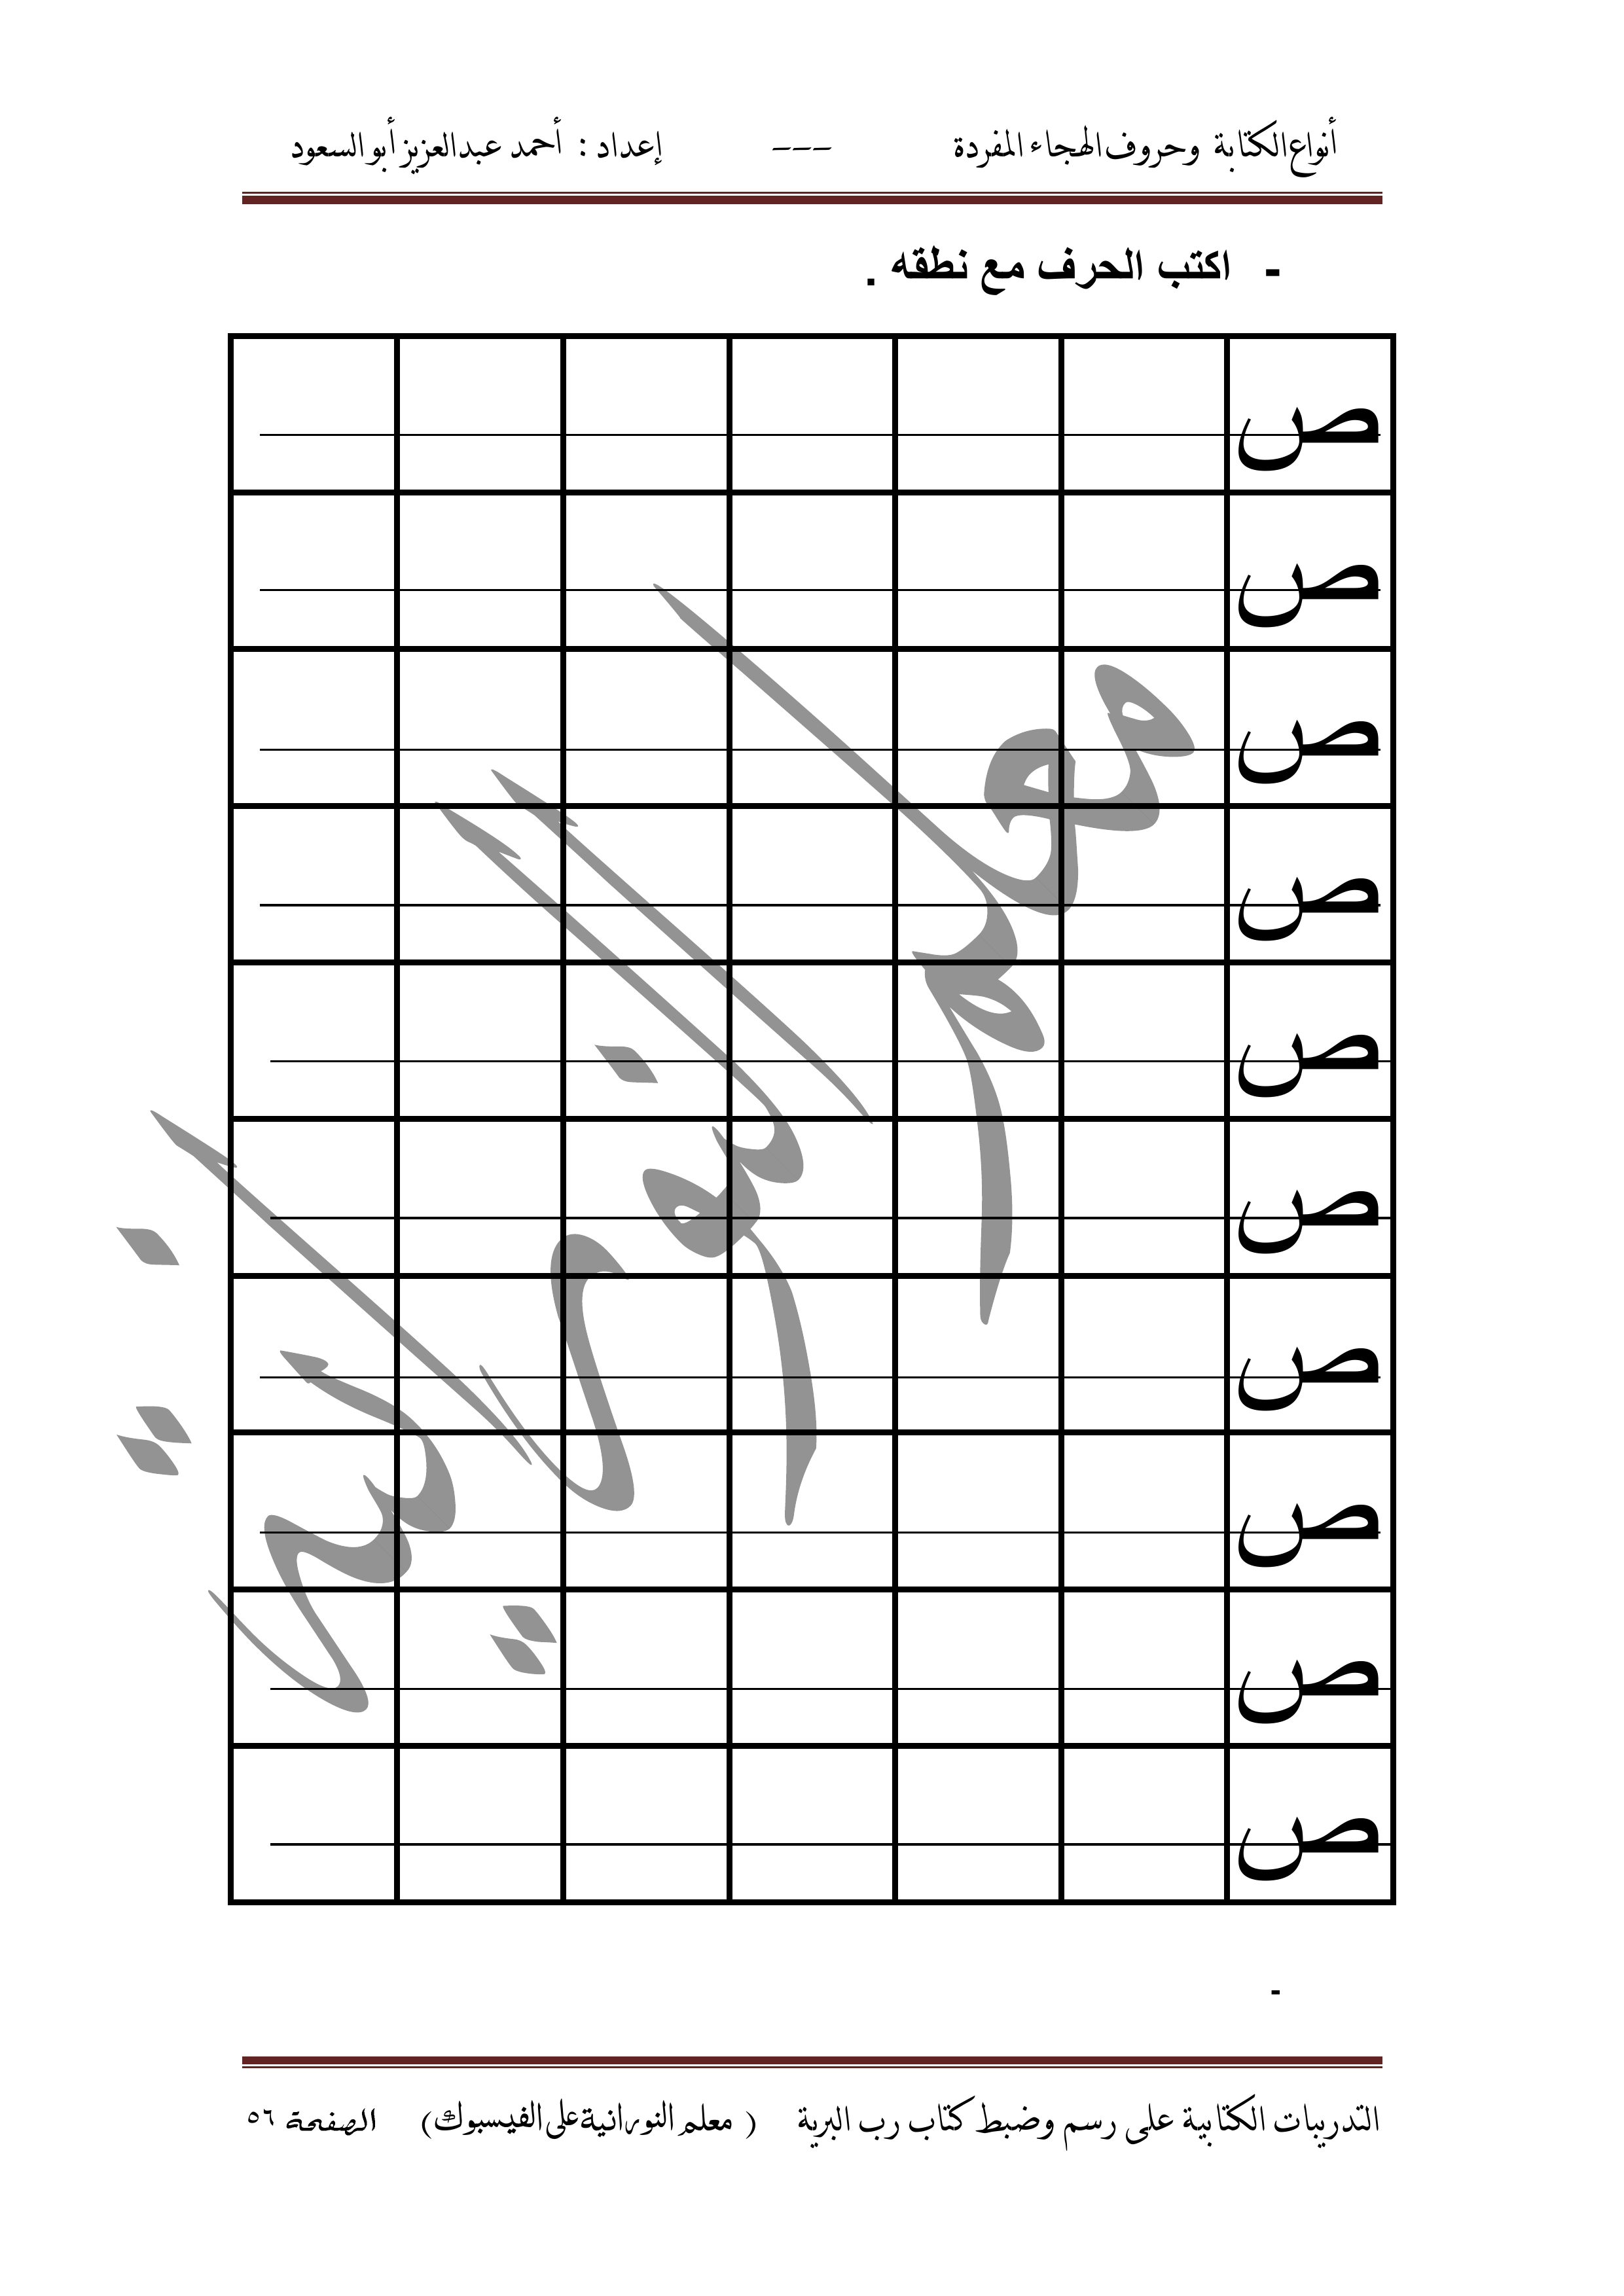 أنواع الكتابة وحروف الهجاء المفردة --- إعداد : أحمد عبدالعزيز أبو السعود
- اكتب الحرف مع نطقه .
ص
ص
ص
ص
ص
ص
ص
ص
ص
ص
معلم النورانية
-
التدريبات الكتابية على رسم وضبط كتاب رب البرية ( معلم النورانية على الفيسبوك) الصفحة ٥٦